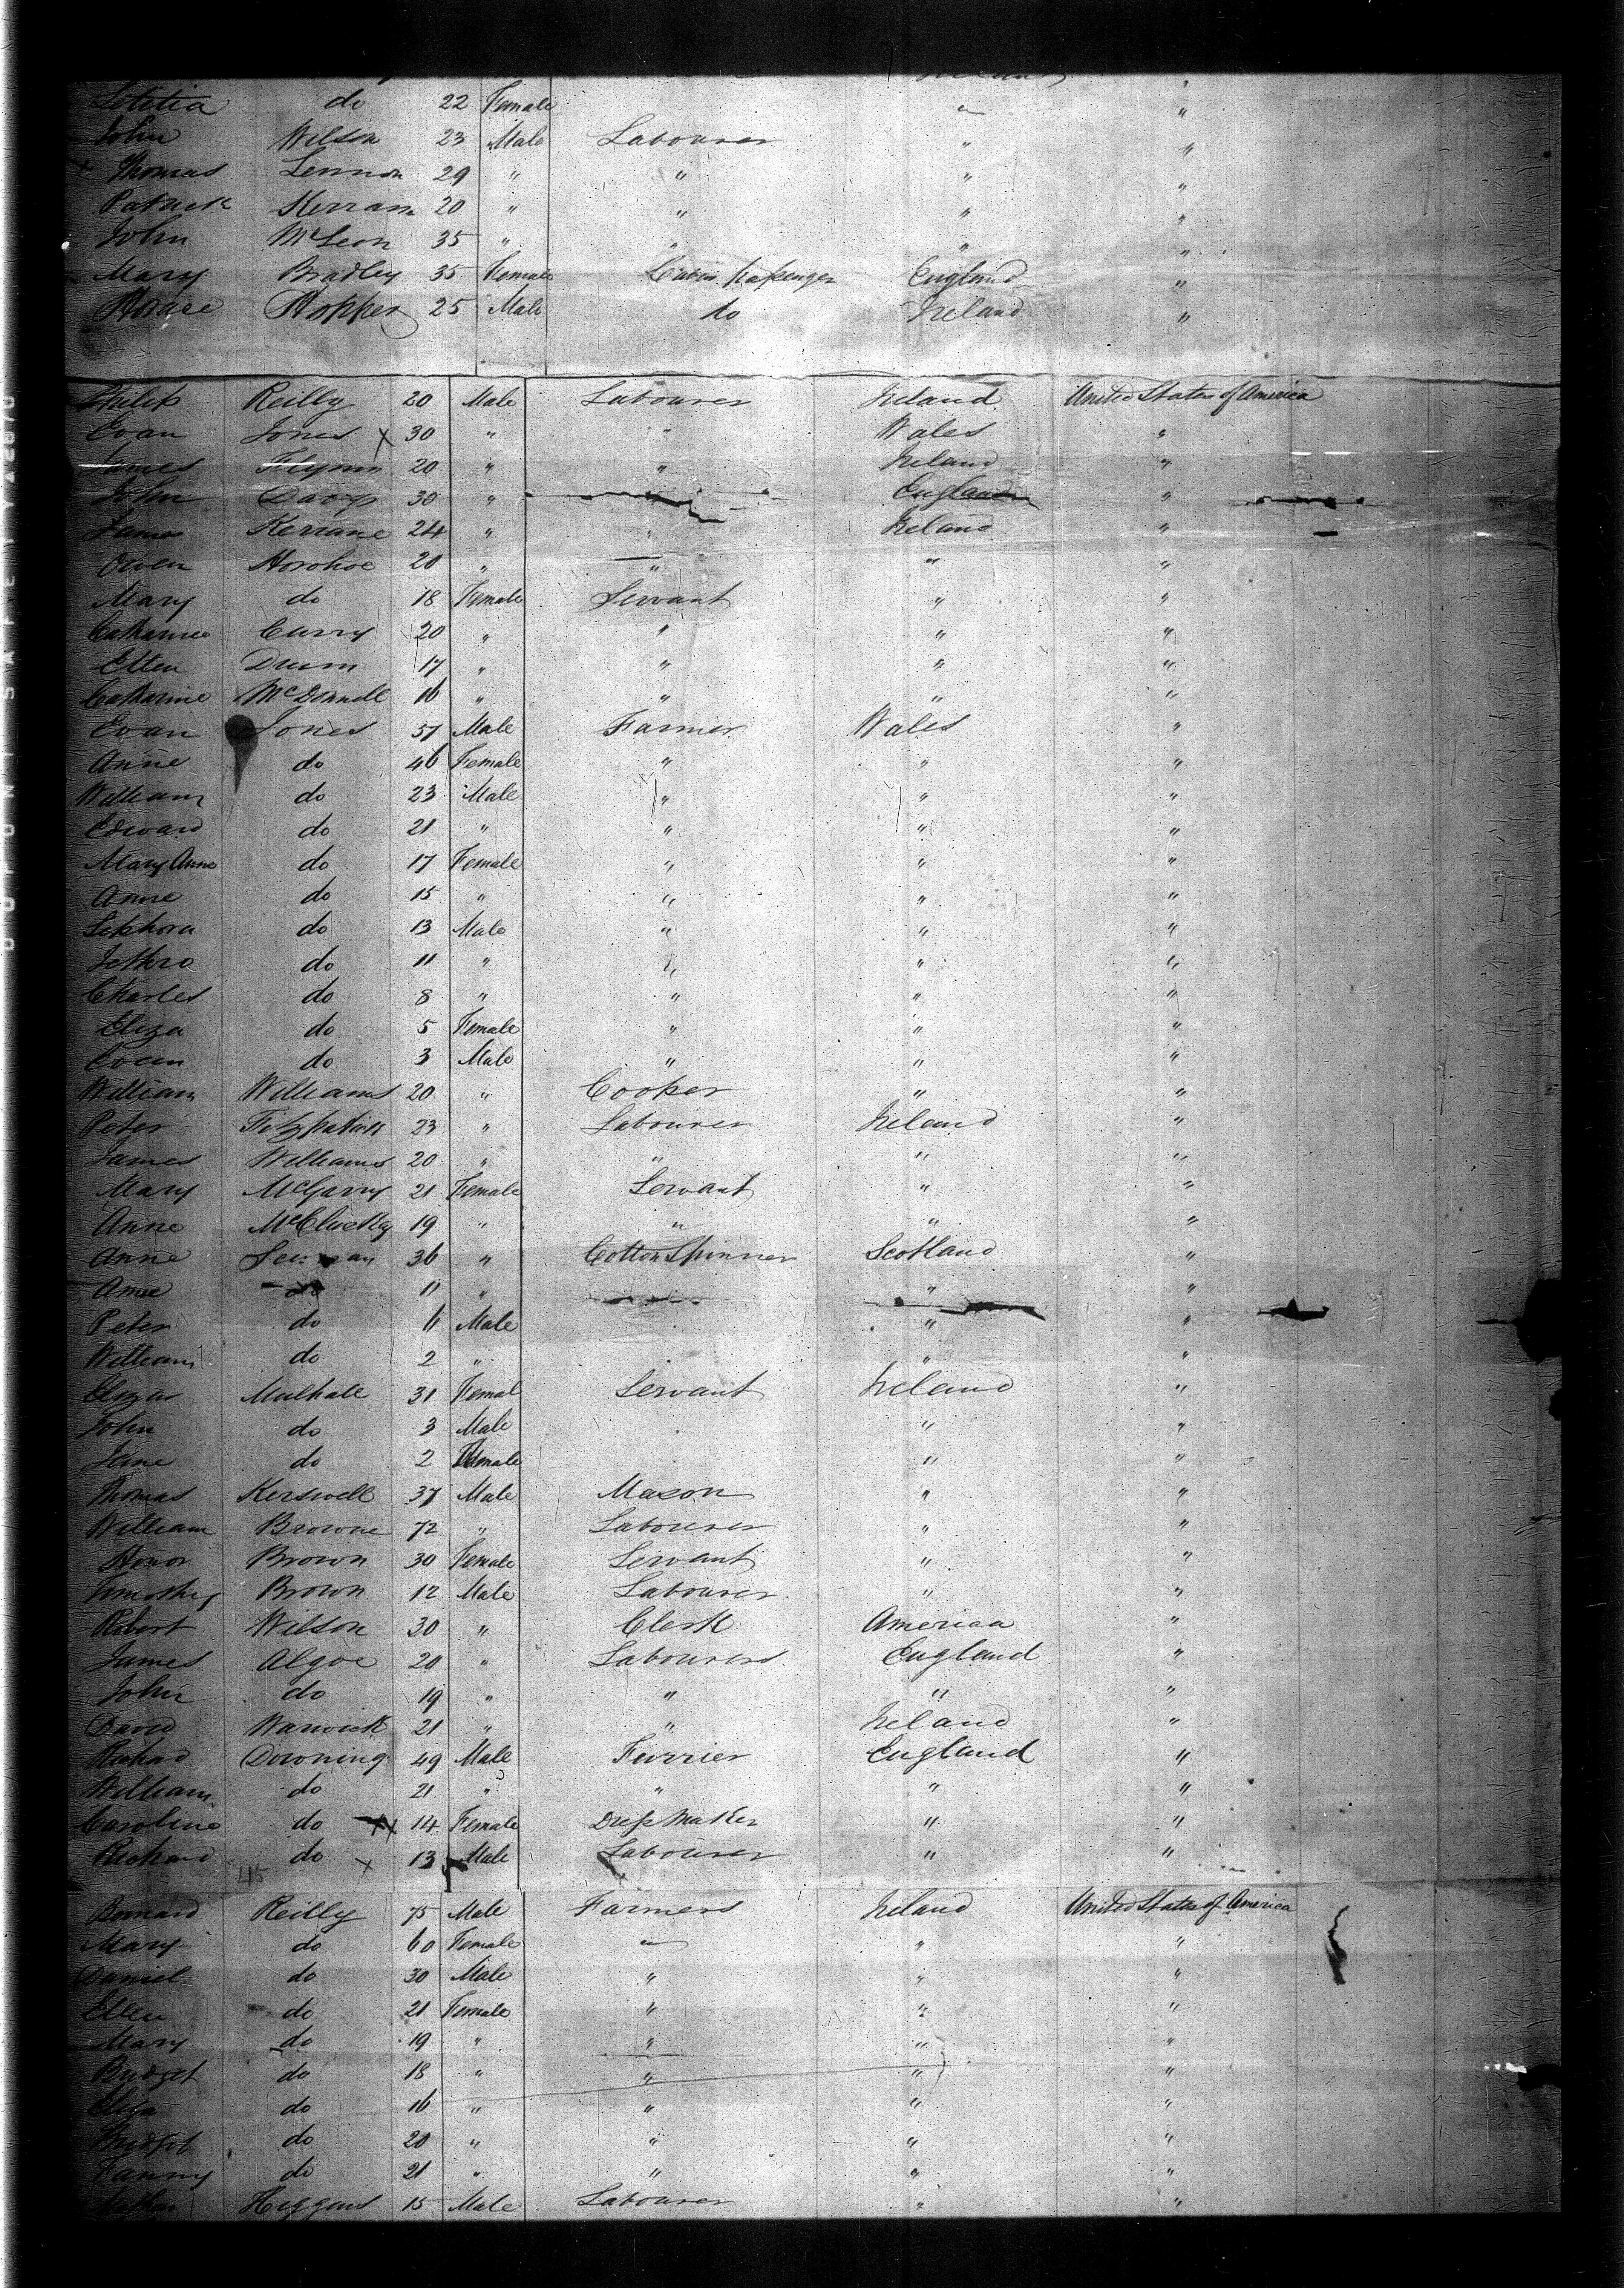 Letitia do 22 Female " "
John Wilson 23 Male Labourer " "
Thomas Lennon 29 " " " "
Patrick Kerran 20 " " " "
John McLeon 35 " " " "
Mary Bradley 35 Female Cabin passenger England "
Horace Hopper 25 Male do Ireland "
Philip Reilly 20 Male Labourer Ireland United States of America
Evan Jones x 30 " " Wales "
James Flynn 20 " " Ireland "
John Davys 30 " " England "
James Kerrane 24 " " Ireland "
Owen Horohoe 20 " " " "
Mary do 18 Female Servant " "
Catharine Curry 20 " " " "
Ellen Drum 17 " " " "
Catharine McDonnell 16 " " " "
Evan Jones 57 Male Farmer Wales "
Anne do 46 Female " " "
William do 23 Male " " "
Edward do 21 " " " "
Mary Anne do 17 Female " " "
Anne do 15 " " " "
Sephora do 13 Male " " "
Jethro do 11 " " " "
Charles do 8 " " " "
Eliza do 5 Female " " "
Owen do 3 Male " " "
William Williams 20 " Cooper " "
Peter Fitzpatrick 23 " Labourer Ireland "
James Williams 20 " " " "
Mary McGarry 21 Female Servant " "
Anne McCluskey 19 " " " "
Anne 36 " Cotton Spinner Scotland "
Anne do 11 " " "
Peter do 6 Male " "
William do 2 " " "
Eliza Mulhall 31 Femal Servant Ireland "
John do 3 Male " "
Jane do 2 Female " "
Thomas Kerswell 37 Male Mason " "
William Browne 72 " Labourer " "
Honor Brown 30 Female Servant " "
Timothy Brown 12 Male Labourer " "
Robert Wilson 30 " Clerk America "
James Algoe 20 " Labourers England "
John do 19 " " " "
David Warwick 21 " " Ireland "
Richard Downing 49 Male Furrier England "
William do 21 " " " "
Caroline do xx 14 Female Dress Maker " "
Richard do x 13 Male Labourer " "
45
Bernard Reilly 75 Male Farmers Ireland United States of America
Mary do 60 Female " " "
Daniel do 30 Male " " "
Ellen do 21 Female " " "
Mary do 19 " " " "
Bridget do 18 " " " "
Eliza do 16 " " " "
Bridget do 20 " " " "
Fanny do 21 " " " "
Higgens 15 Male Labourer " "